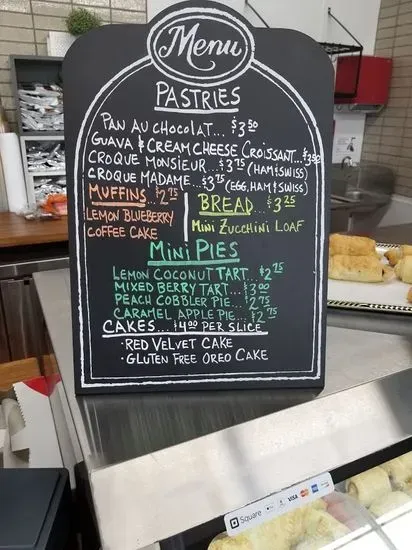 Menu
PASTRIES
PAN AU CHOCOLAT... $3.50
GUAVA & CREAM CHEESE CROISSANT...$3.50
CROQUE MONSIEUR... $3.75 (HAM & SWISS)
CROQUE MADAME... $3.75 (EGG, HAM & SWISS)
MUFFINS... $2.75
LEMON BLUEBERRY
COFFEE CAKE
BREAD...$3.25
MINI ZUCCHINI LOAF
MINI PIES
LEMON COCONUT TART... $2.75
MIXED BERRY TART... $3.00
PEACH COBBLER PIE... $2.75
CARAMEL APPLE PIE... $2.75
CAKES... $4.00 PER SLICE
· RED VELVET CAKE
· GLUTEN FREE OREO CAKE
Square VISA